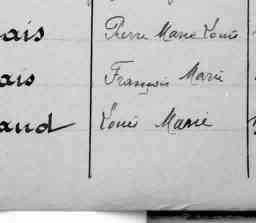 ais Pierre Marie Louis
ais François Marie
aud Louis Marie